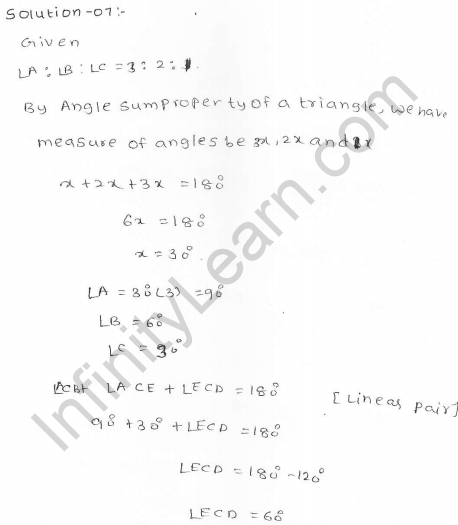 Solution-07:-
Given
∠A : ∠B : ∠C = 3 : 2 : 1.
By Angle sum property of a triangle, we have
measure of angles be 3x, 2x and 1x
x + 2x + 3x = 180°
6x = 180°
x = 30°.
∠A = 30°(3) = 90°
∠B = 60°
∠C = 30°
∠ACE + ∠ECD = 180° [Linear pair]
90° + 30° + ∠ECD = 180°
∠ECD = 180° - 120°
∠ECD = 60°
InfinityLearn.com